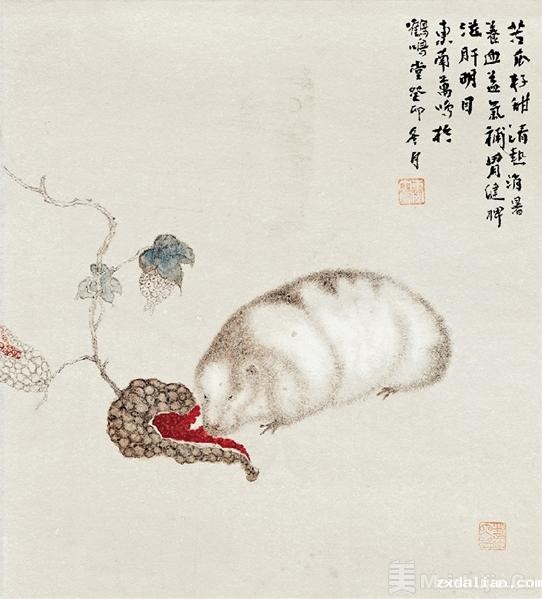 苦瓜籽甜清热消暑
养血益气補胃健脾
滋肝明目
東南萬鸣於
鶴鳴堂癸卯冬月
美
zxdalian.com